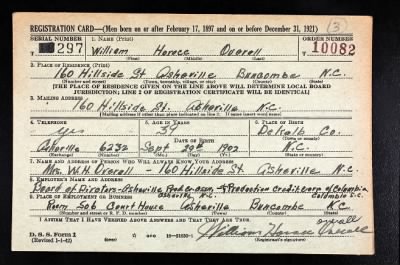 REGISTRATION CARD—(Men born on or after February 17, 1897 and on or before December 31, 1921)
(3)
SERIAL NUMBER 1. NAME (Print) ORDER NUMBER
297 William Horace Overall 10082
(First) (Middle) (Last)
2. PLACE OF RESIDENCE (Print)
160 Hillside St Asheville Buncombe N.C.
(Number and street) (Town, township, village, or city) (County) (State)
[THE PLACE OF RESIDENCE GIVEN ON THE LINE ABOVE WILL DETERMINE LOCAL BOARD
JURISDICTION; LINE 2 OF REGISTRATION CERTIFICATE WILL BE IDENTICAL]
3. MAILING ADDRESS
160 Hillside St. Asheville N.C.
[Mailing address if other than place indicated on line 2. If same insert word same]
4. TELEPHONE 5. AGE IN YEARS 6. PLACE OF BIRTH
yes 39 DeKalb Co.
DATE OF BIRTH (Town or county)
Asheville 6232 Sept 20th 1902 N.C.
(Exchange) (Number) (Mo.) (Day) (Yr.) (State or country)
7. NAME AND ADDRESS OF PERSON WHO WILL ALWAYS KNOW YOUR ADDRESS
Mrs. W.H. Overall - 160 Hillside St Asheville N.C.
8. EMPLOYER'S NAME AND ADDRESS
Board of Directors - Asheville Production Credit Corp of Columbia
Asheville N.C. Columbia S.C.
9. PLACE OF EMPLOYMENT OR BUSINESS
Room 506 Court House Asheville Buncombe N.C.
(Number and street or R. F. D. number) (Town) (County) (State)
I AFFIRM THAT I HAVE VERIFIED ABOVE ANSWERS AND THAT THEY ARE TRUE.
overall
D. S. S. Form 1
(Revised 1-1-42) (over) 16—21630-1
William Horace Overall
(Registrant's signature)